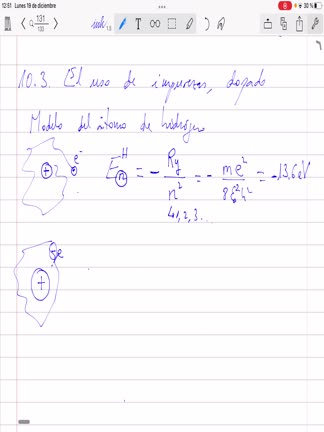 12:51 Lunes 19 de diciembre
30 %
131
133
10.3. El uso de impurezas, dopado
Modelo del átomo de hidrógeno
+ e⁻ Eₙᴴ = - Ry/n² = - me⁴/8ε₀²h² = -13,6 eV
1, 2, 3...
-e
+